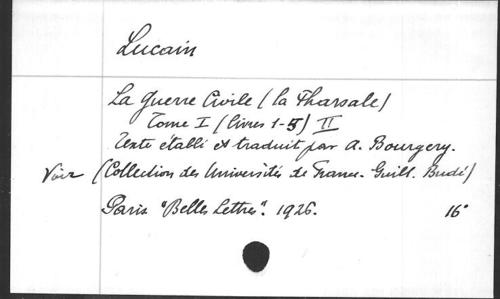 Lucain
La Guerre Civile (la Pharsale)
Tome I (livres 1-5) II
Texte établi et traduit par A. Bourgery.
Voir (Collection des Universités de France. Guill. Budé)
Paris "Belles Lettres". 1926. 16°